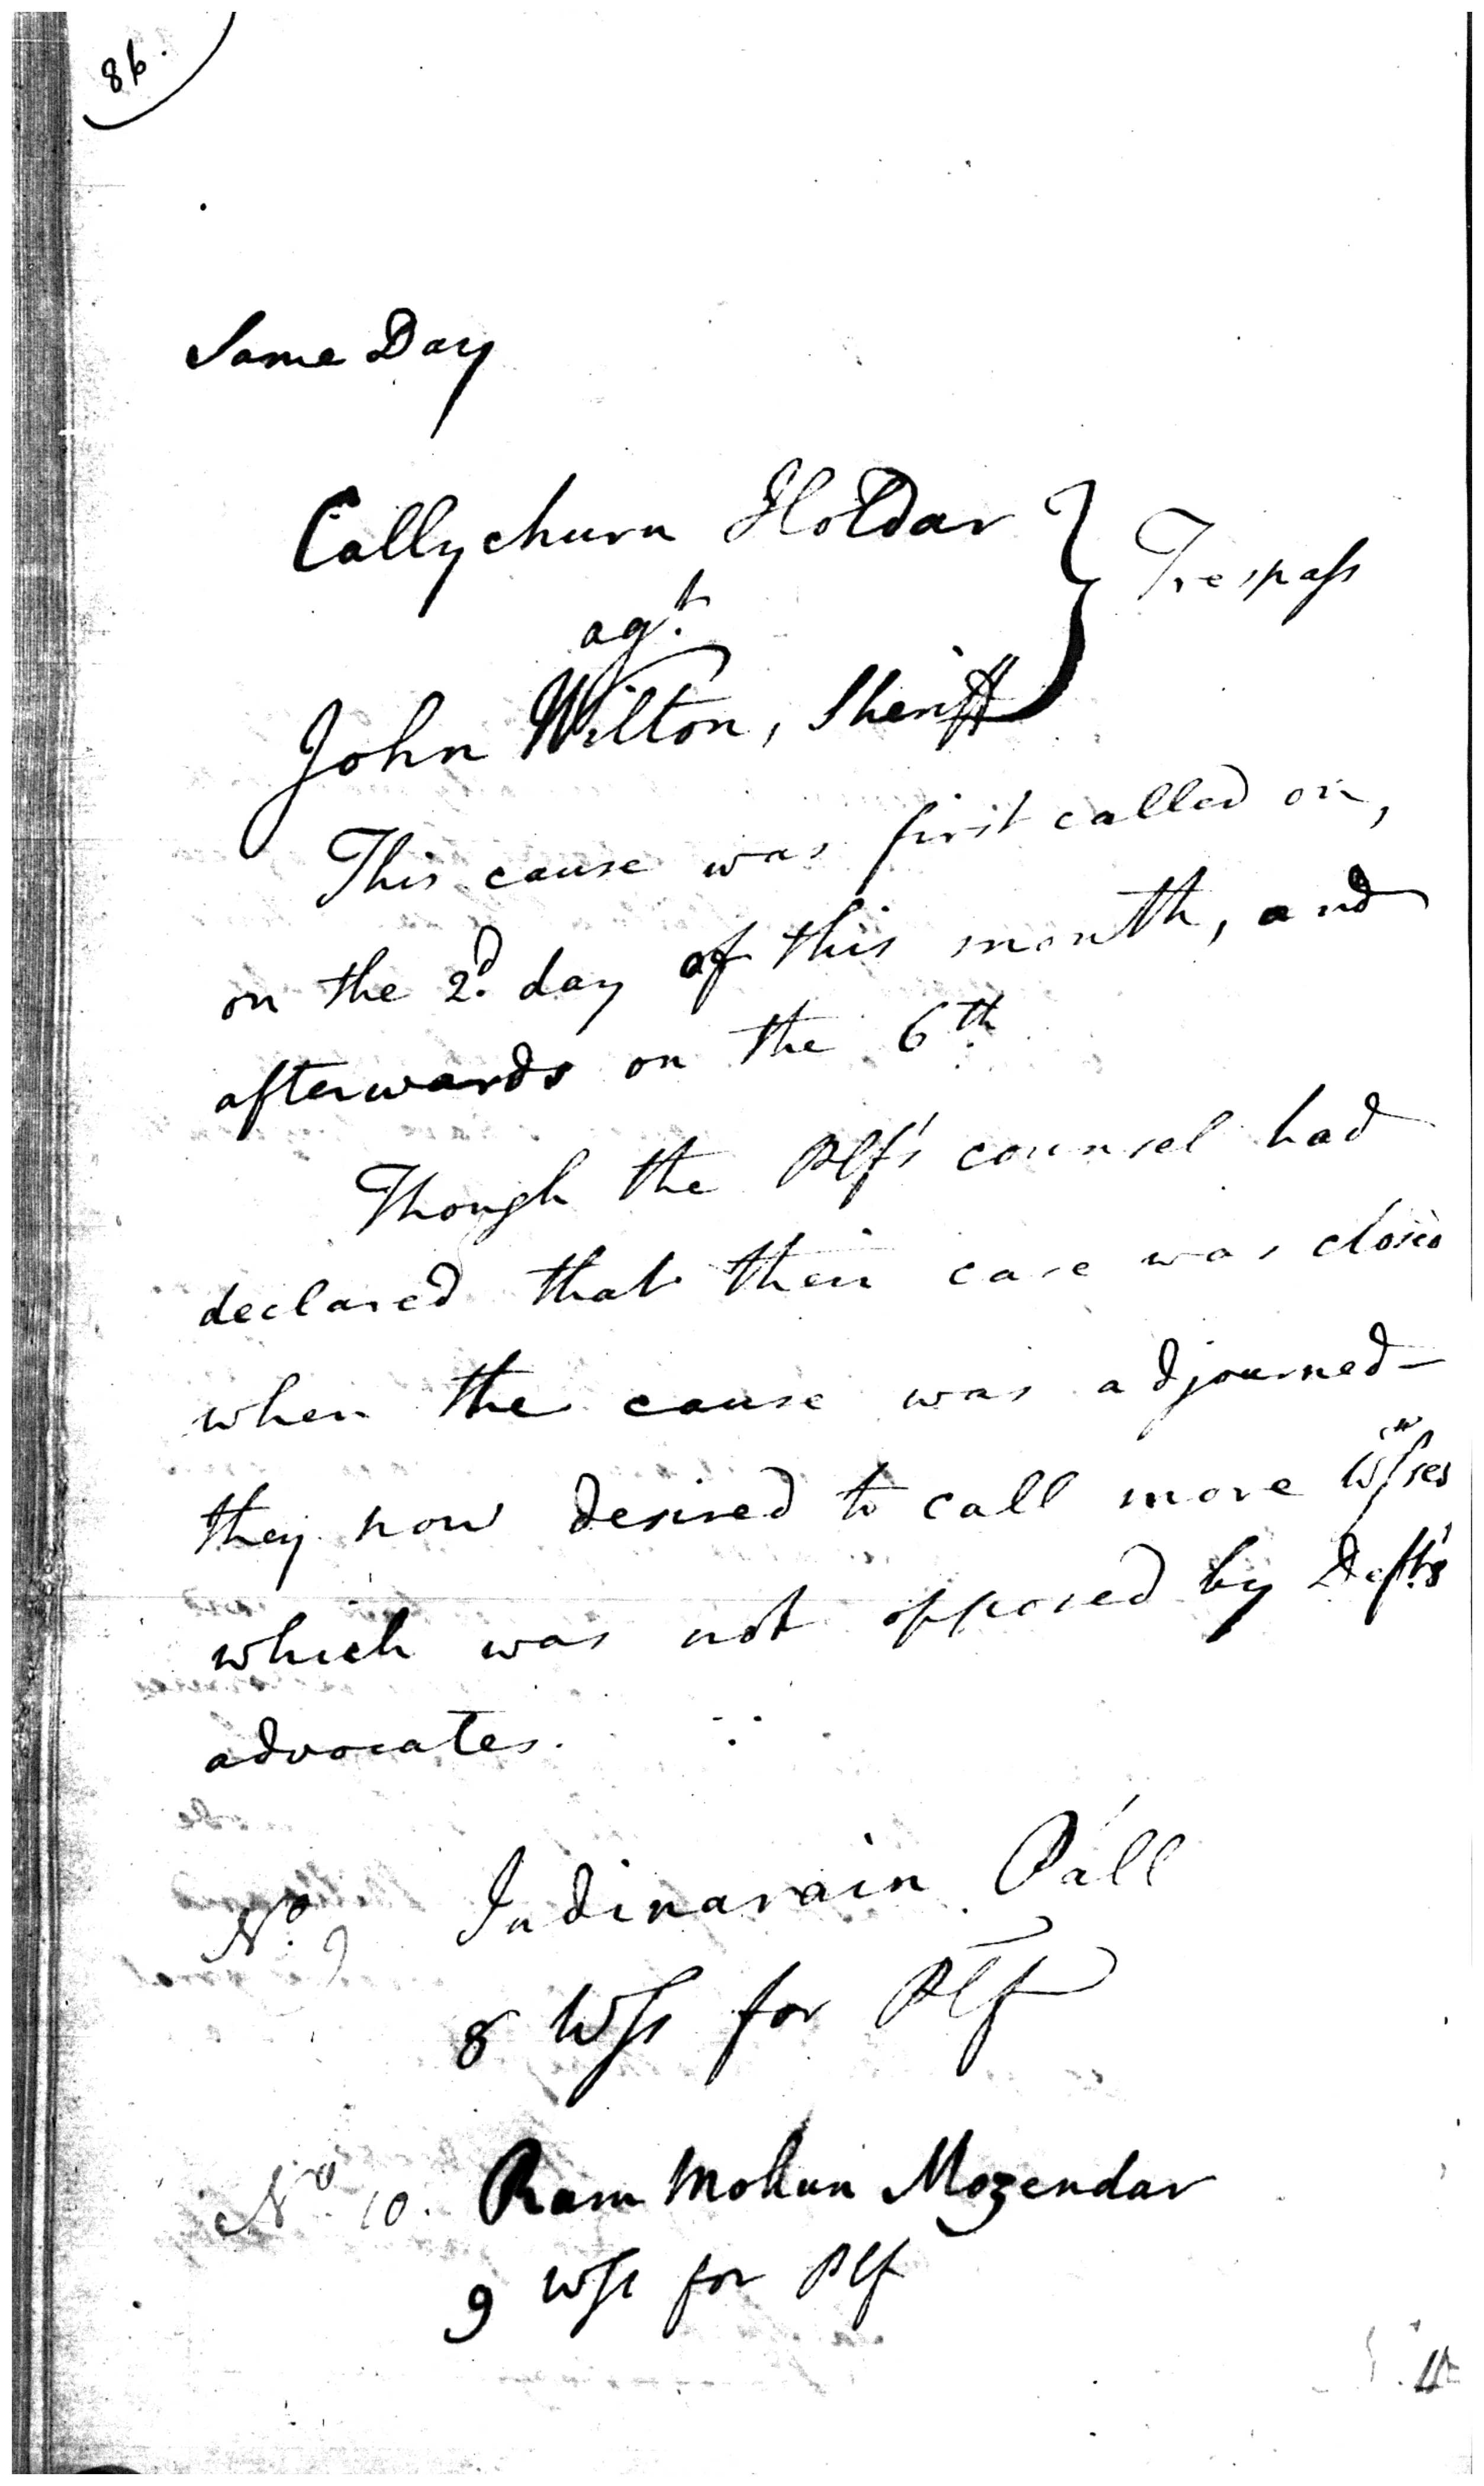 86.
Same Day
Callychurn Holdar } Trespass
agt.
John Wilton, Sheriff
This cause was first called on,
on the 2d. day of this month, and
afterwards on the 6th.
Though the Plf's counsel had
declared that their case was closed
when the cause was adjourned—
they now desired to call more Wsses
which was not opposed by Deft's
advocates.
No. 9 Indinarain Páll
8 Wss for Plf
No. 10. Ram Mohun Mozendar
9 Wss for Plf